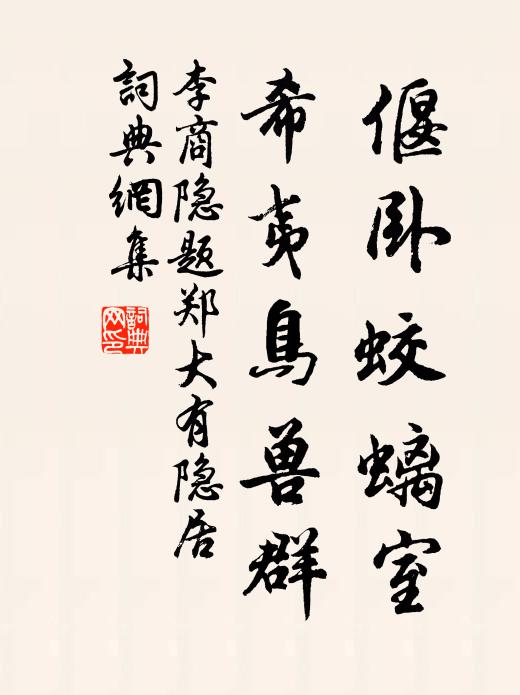 偃卧蛟螭室
希夷鳥兽群
李商隐题郑大有隐居
詞典網集
詞典网印